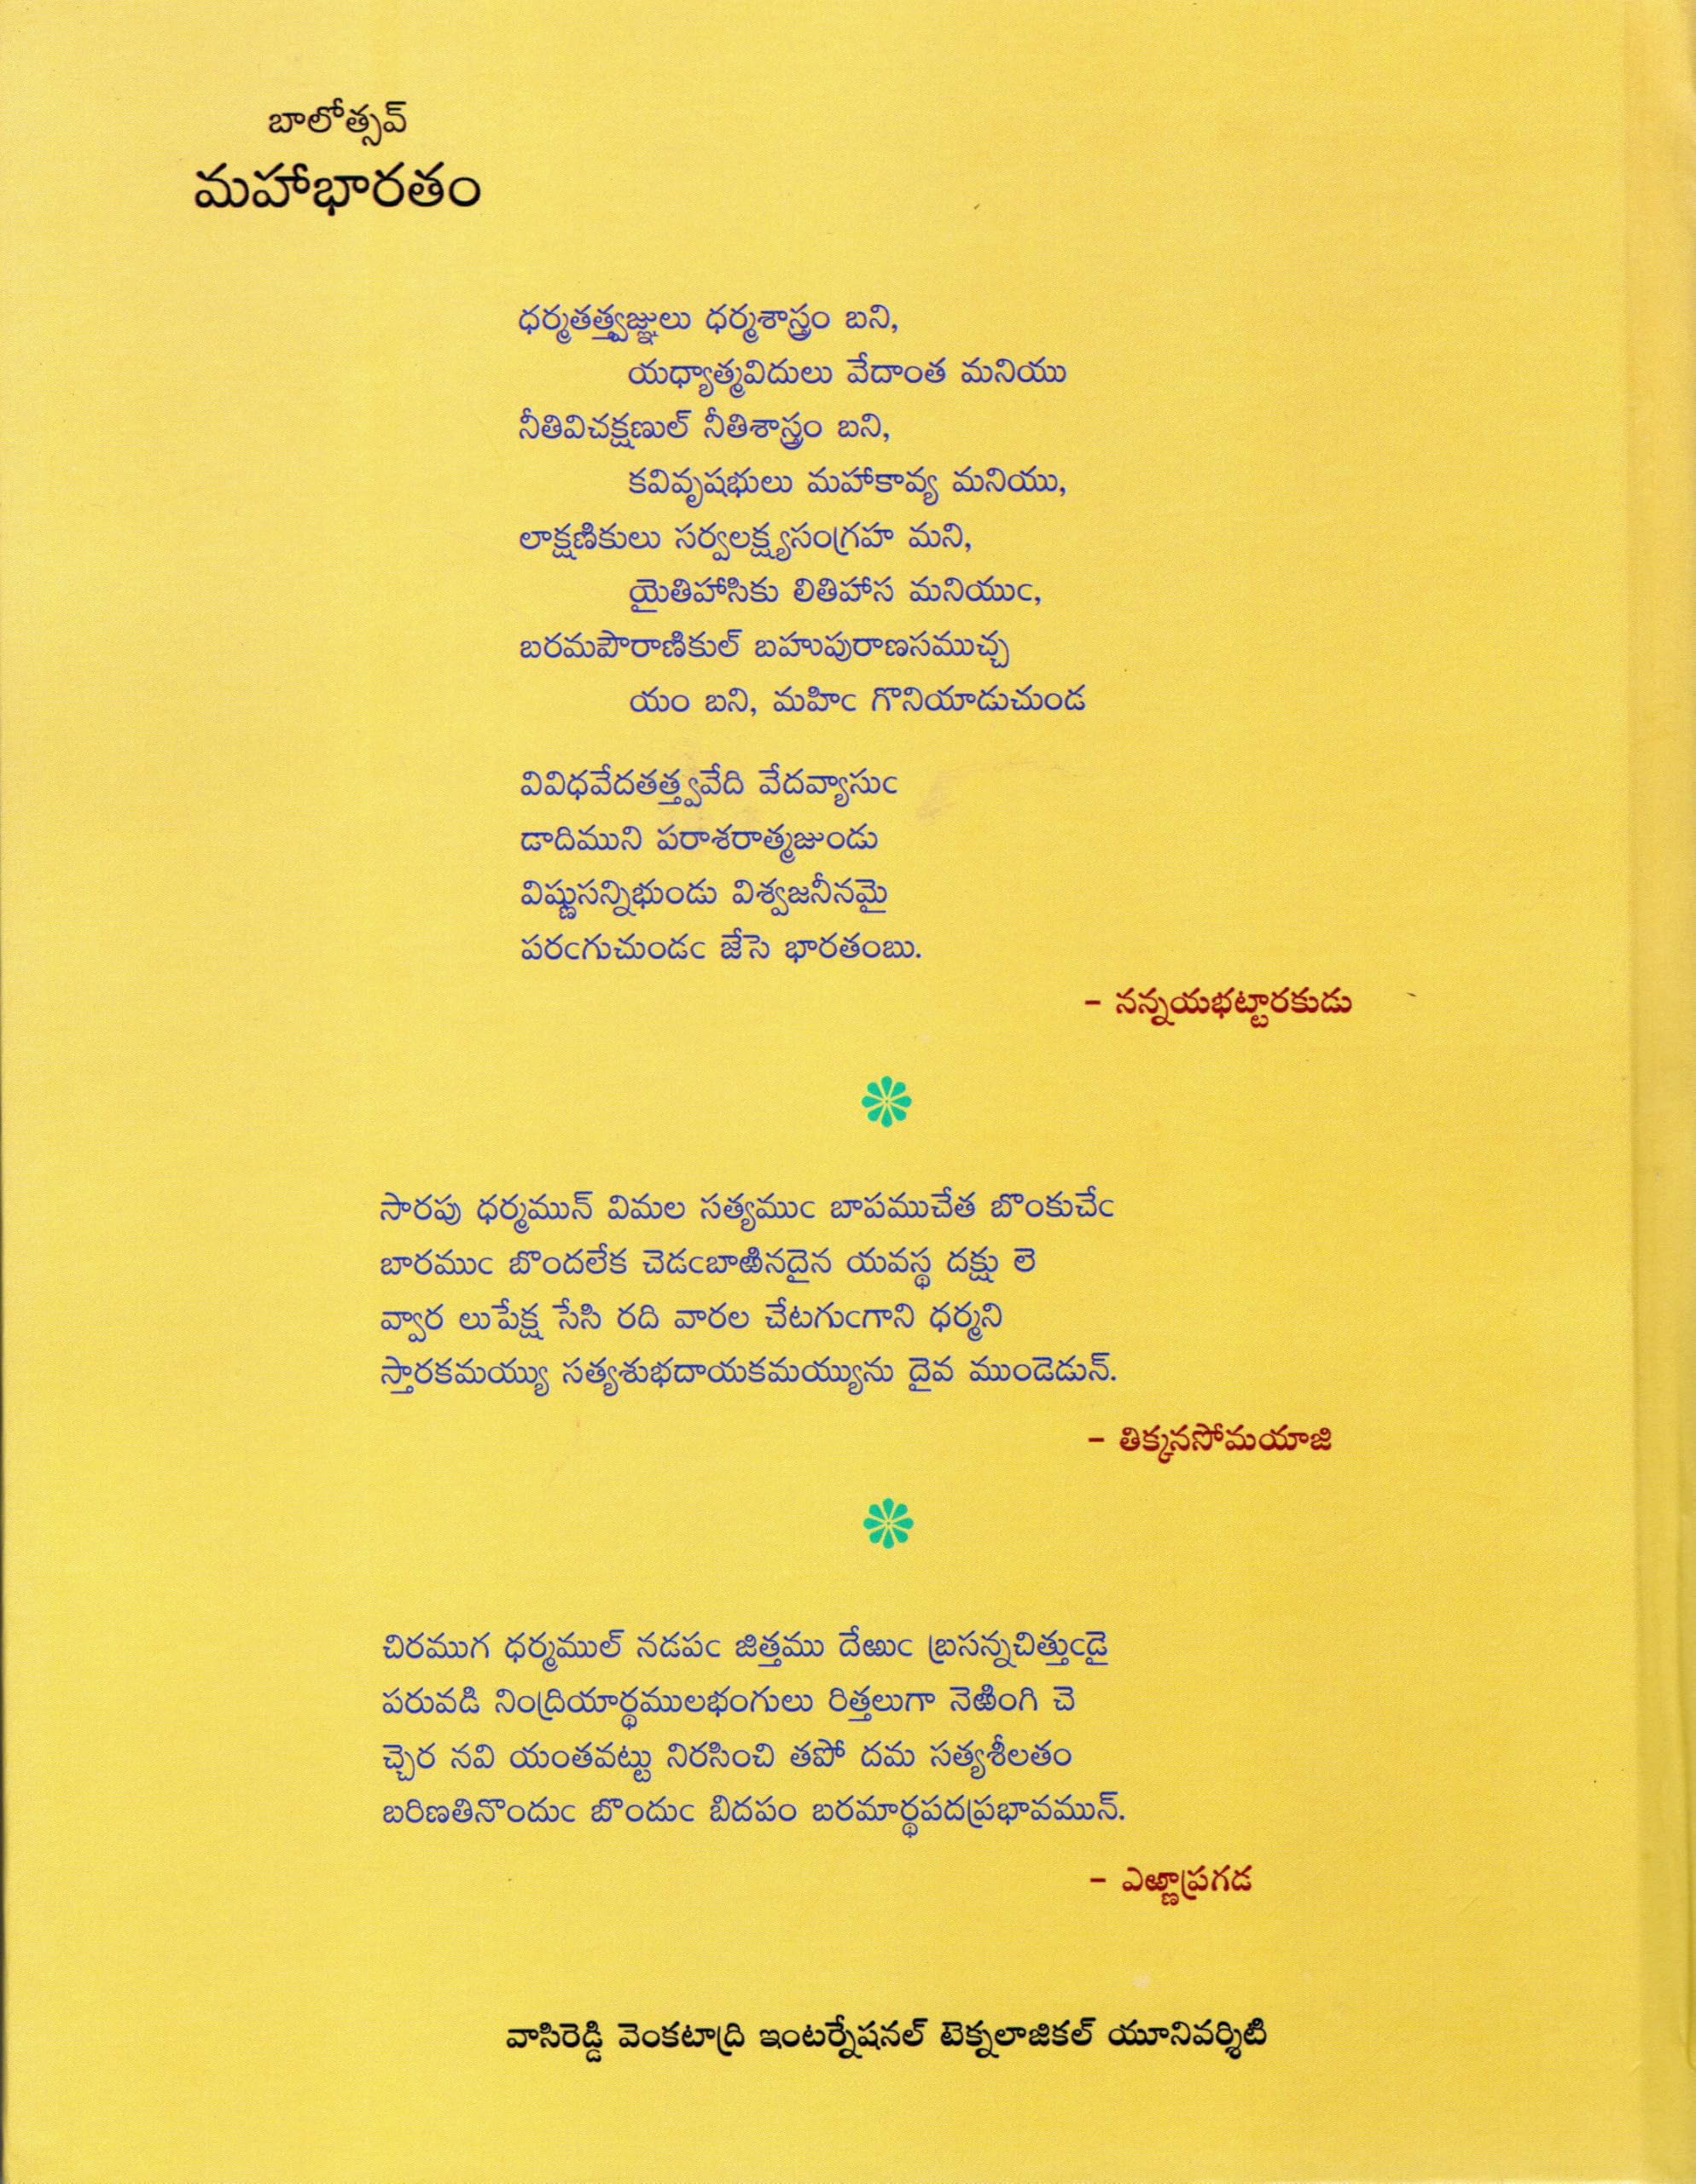 బాలోత్సవ్
మహాభారతం
ధర్మతత్త్వజ్ఞులు ధర్మశాస్త్రం బని,
యధ్యాత్మవిదులు వేదాంత మనియు
నీతివిచక్షణుల్ నీతిశాస్త్రం బని,
కవివృషభులు మహాకావ్య మనియు,
లాక్షణికులు సర్వలక్ష్యసంగ్రహ మని,
యైతిహాసికు లితిహాస మనియుఁ,
బరమపౌరాణికుల్ బహుపురాణసముచ్చ
యం బని, మహిఁ గొనియాడుచుండ
వివిధవేదతత్త్వవేది వేదవ్యాసుఁ
డాదిముని పరాశరాత్మజుండు
విష్ణుసన్నిభుండు విశ్వజనీనమై
పరఁగుచుండఁ జేసె భారతంబు.
– నన్నయభట్టారకుడు
సారపు ధర్మమున్ విమల సత్యముఁ బాపముచేత బొంకుచేఁ
బారముఁ బొందలేక చెడఁబాఱినదైన యవస్థ దక్షు లె
వ్వార లుపేక్ష సేసి రది వారల చేటగుఁగాని ధర్మని
స్తారకమయ్యు సత్యశుభదాయకమయ్యును దైవ ముండెడున్.
– తిక్కనసోమయాజి
చిరముగ ధర్మముల్ నడపఁ జిత్తము దేఱుఁ బ్రసన్నచిత్తుఁడై
పరువడి నింద్రియార్థములభంగులు రిత్తలుగా నెఱింగి చె
చ్చెర నవి యంతవట్టు నిరసించి తపో దమ సత్యశీలతం
బరిణతినొందుఁ బొందుఁ బిదపం బరమార్థపదప్రభావమున్.
– ఎఱ్ఱాప్రగడ
వాసిరెడ్డి వెంకటాద్రి ఇంటర్నేషనల్ టెక్నలాజికల్ యూనివర్శిటి